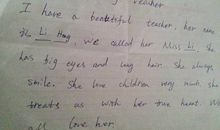 teacher
I have a beautiful teacher, her name
Is Li Hong, we called her Miss Li. She
has big eyes and long hair. She always
smile. She love children very much, she
treats us with her true heart. We
all love her.